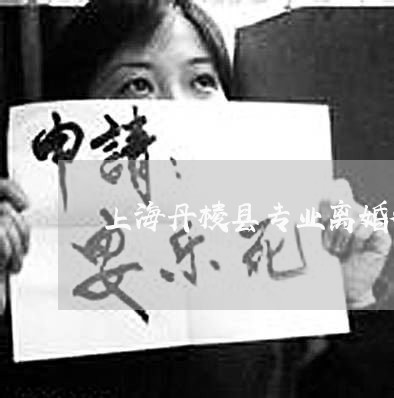 申請：
上海丹棱县专业离婚
安乐死